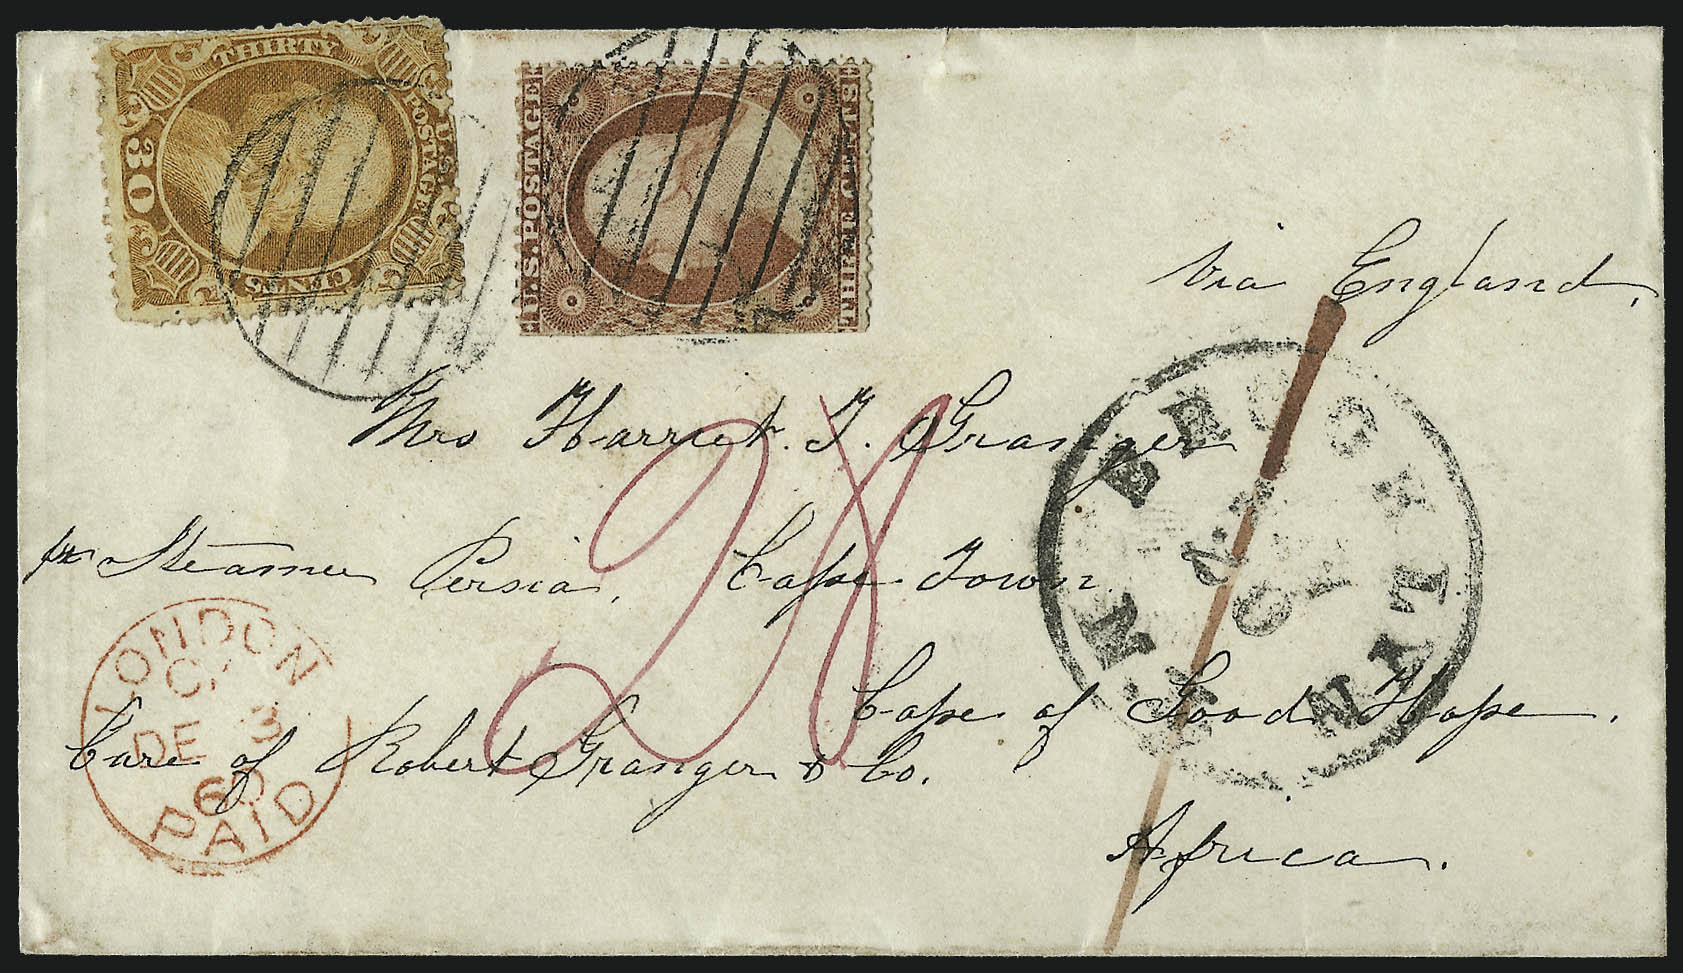 THIRTY
U.S. POSTAGE
30
CENTS
U.S. POSTAGE
THREE CENTS
via England.
Mrs Harriet. J. Granger
pr Steamer Persia,
Cape Town.
Cape of Good Hope.
Care of Robert Granger & Co.
Africa.
BROOKLYN
N.Y.
LONDON
DE 3
60
PAID